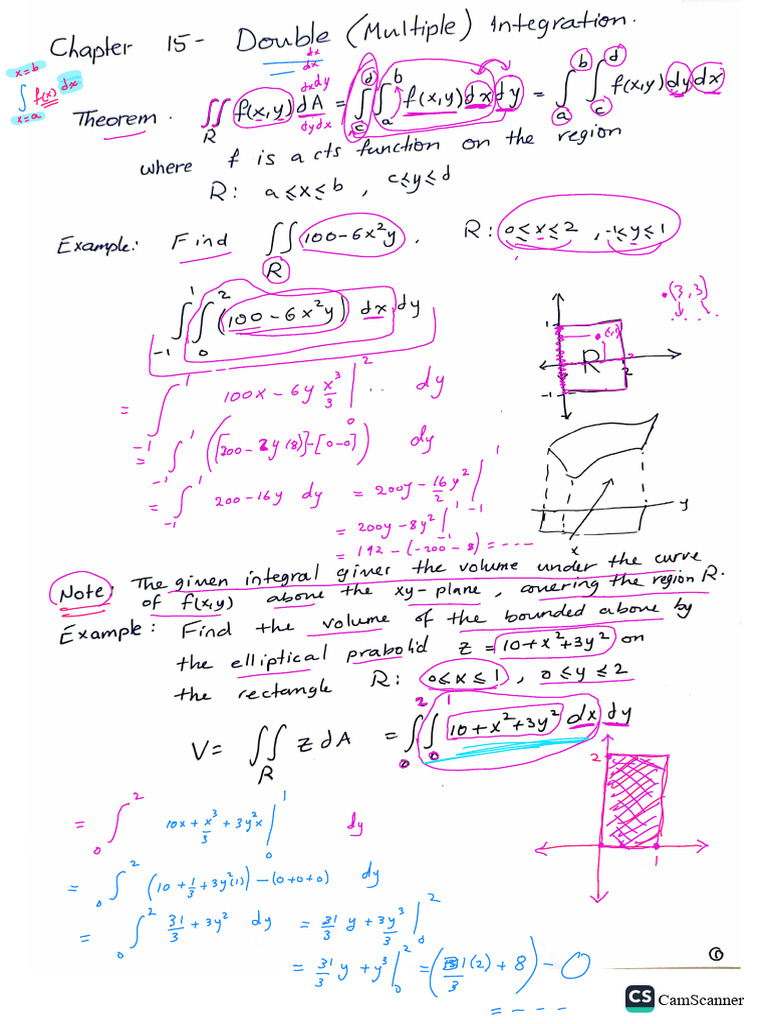 Chapter 15- Double (Multiple) Integration.
dx
dx
x=b
∫ f(x) dx
x=a
Theorem. ∬_R f(x,y) dA = ∫_c^d ∫_a^b f(x,y) dx dy = ∫_a^b ∫_c^d f(x,y) dy dx
dxdy
dydx
where f is a cts function on the region
R: a≤x≤b , c≤y≤d
Example: Find ∬_R 100-6x²y . R: 0≤x≤2 , -1≤y≤1
∫_{-1}^1 ∫_0^2 (100-6x²y) dx dy
.(3,3)
1
R
2
-1
= ∫_{-1}^1 100x - 6y x³/3 |_0^2 .. dy
= ∫_{-1}^1 ([200-2y(8)]-[0-0]) dy
= ∫_{-1}^1 200-16y dy = 200y - 16y²/2 |_{-1}^1
= 200y - 8y² |_{-1}^1
= 192 - (-200 - 8) = ----
y
x
Note: The given integral gives the volume under the curve
of f(x,y) above the xy-plane, covering the region R.
Example: Find the volume of the bounded above by
the elliptical prabolid z = 10+x²+3y² on
the rectangle R: 0≤x≤1 , 0≤y≤2
V= ∬_R z dA = ∫_0^2 ∫_0^1 10+x²+3y² dx dy
2
1
= ∫_0^2 10x + x³/3 + 3y²x |_0^1 dy
= ∫_0^2 (10 + 1/3 + 3y²(1)) - (0+0+0) dy
= ∫_0^2 31/3 + 3y² dy = 31/3 y + 3y³/3 |_0^2
= 31/3 y + y³ |_0^2 = (31(2)/3 + 8) - 0
= ----
①
CS CamScanner